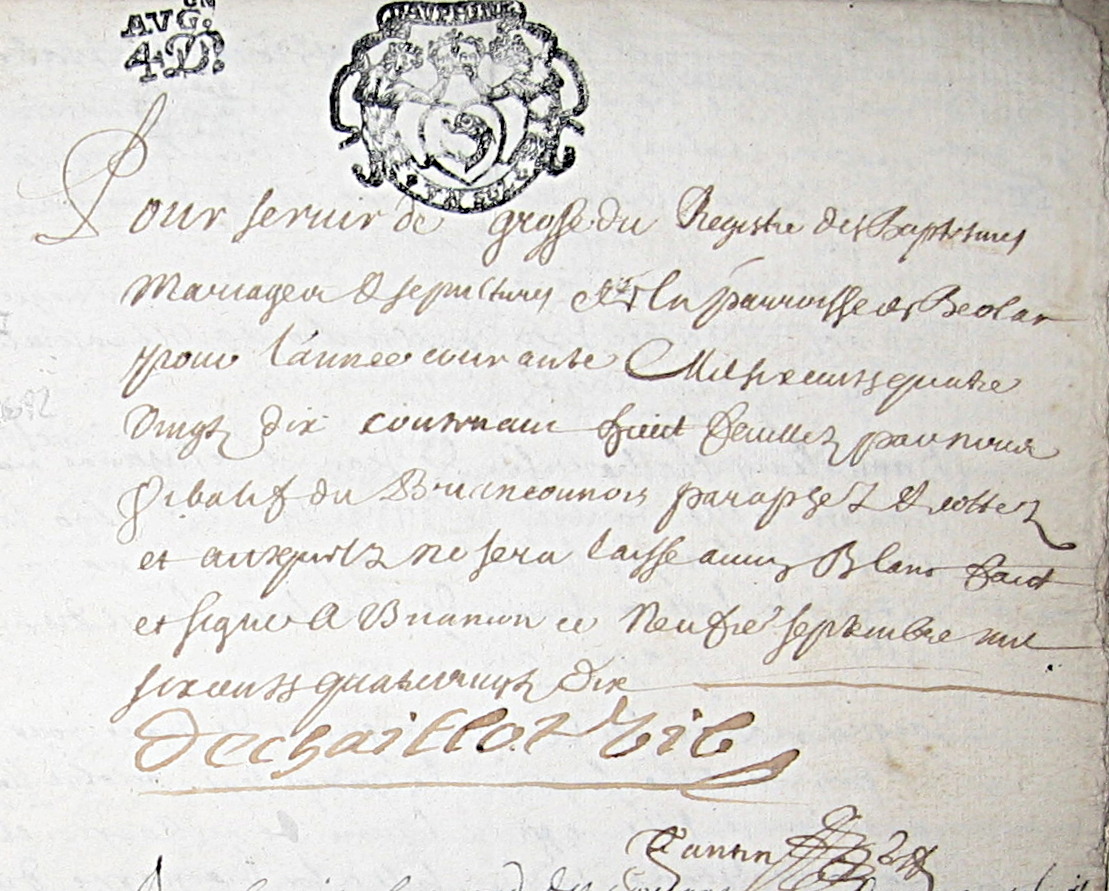 AVG.ON
4D.
DAUPHINE
Pour seruir de grosse du Registre des Baptesmes
Mariages & sepultures de la parroisse de Beolar
pour lannee courante Mil six cents quatre
Vingt dix contenant huict feuillets par nous
Vibalif du Brianconnois paraphez & cottez
et auxquels ne sera laisse aucun Blanc faict
et signe A Briancon ce Neufie septembre mil
six cents quatre vingt dix
Dechaillol Vib
Tantin